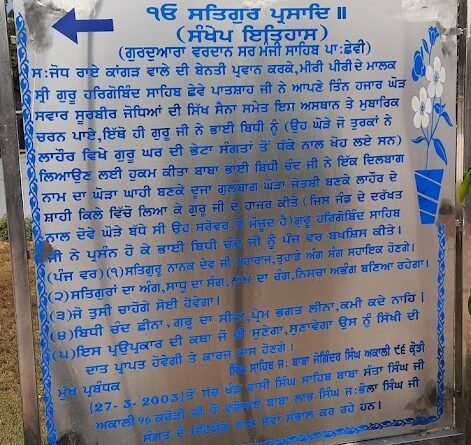 ੧ੴ ਸਤਿਗੁਰ ਪ੍ਰਸਾਦਿ ॥
(ਸੰਖੇਪ ਇਤਿਹਾਸ)
(ਗੁਰਦੁਆਰਾ ਵਰਦਾਨ ਸਰ ਮੰਜੀ ਸਾਹਿਬ ਪਾ:ਛੇਵੀ)
ਸ:ਜੋਧ ਰਾਏ ਕਾਂਗੜ ਵਾਲੇ ਦੀ ਬੇਨਤੀ ਪ੍ਰਵਾਨ ਕਰਕੇ,ਮੀਰੀ ਪੀਰੀ ਦੇ ਮਾਲਕ
ਸ੍ਰੀ ਗੁਰੂ ਹਰਿਗੋਬਿੰਦ ਸਾਹਿਬ ਛੇਵੇ ਪਾਤਸ਼ਾਹ ਜੀ ਨੇ ਆਪਣੇ ਤਿੰਨ ਹਜਾਰ ਘੋੜ
ਸਵਾਰ ਸੂਰਬੀਰ ਜੋਧਿਆਂ ਦੀ ਸਿੱਖ ਸੈਨਾ ਸਮੇਤ ਇਸ ਅਸਥਾਨ ਤੇ ਮੁਬਾਰਿਕ
ਚਰਨ ਪਾਏ,ਇੱਥੋ ਹੀ ਗੁਰੂ ਜੀ ਨੇ ਭਾਈ ਬਿਧੀ ਨੂੰ (ਉਹ ਘੋੜੇ ਜੋ ਤੁਰਕਾਂ ਨੇ
ਲਾਹੌਰ ਵਿਖੇ ਗੁਰੂ ਘਰ ਦੀ ਭੇਟਾ ਸੰਗਤਾਂ ਤੋਂ ਧੱਕੇ ਨਾਲ ਖੋਹ ਲਏ ਸਨ)
ਲਿਆਉਣ ਲਈ ਹੁਕਮ ਕੀਤਾ ਬਾਬਾ ਭਾਈ ਬਿਧੀ ਚੰਦ ਜੀ ਨੇ ਇੱਕ ਦਿਲਬਾਗ
ਨਾਮ ਦਾ ਘੋੜਾ ਘਾਹੀ ਬਣਕੇ ਦੂਜਾ ਗੁਲਬਾਗ ਘੋੜਾ ਜੋਤਸ਼ੀ ਬਣਕੇ ਲਾਹੌਰ ਦੇ
ਸ਼ਾਹੀ ਕਿਲੇ ਵਿੱਚੋ ਲਿਆ ਕੇ ਗੁਰੂ ਜੀ ਦੇ ਹਾਜਰ ਕੀਤੇ (ਜਿਸ ਜੰਡ ਦੇ ਦਰੱਖਤ
ਨਾਲ ਦੋਵੇ ਘੋੜੇ ਬੱਧੇ ਸੀ ਉਹ ਸਰੋਵਰ ਤੇ ਮੌਜੂਦ ਹੈ)ਗੁਰੂ ਹਰਿਗੋਬਿੰਦ ਸਾਹਿਬ
ਜੀ ਨੇ ਪ੍ਰਸੰਨ ਹੋ ਕੇ ਭਾਈ ਬਿਧੀ ਚੰਦ ਜੀ ਨੂੰ ਪੰਜ ਵਰ ਬਖਸ਼ਿਸ ਕੀਤੇ।
(ਪੰਜ ਵਰ)(੧)ਸਤਿਗੁਰੂ ਨਾਨਕ ਦੇਵ ਜੀ ਮਹਾਰਾਜ,ਤੁਹਾਡੇ ਅੰਗ ਸੰਗ ਸਹਾਇਕ ਹੋਣਗੇ।
(੨)ਸਤਿਗੁਰਾਂ ਦਾ ਅੰਗ,ਸਾਧੂ ਦਾ ਸੰਗ,ਨਾਮ ਦਾ ਰੰਗ,ਨਿਸਚਾ ਅਭੰਗ ਬਣਿਆ ਰਹੇਗਾ।
(੩)ਜੋ ਤੁਸੀ ਚਾਹੋਗੇ ਸੋਈ ਹੋਵੇਗਾ।
(੪)ਬਿਧੀ ਚੰਦ ਛੀਨਾ, ਗੁਰੂ ਦਾ ਸੀਨਾ,ਪ੍ਰੇਮ ਭਗਤ ਲੀਨਾ,ਕਮੀ ਕਦੇ ਨਾਹਿ।
(੫)ਇਸ ਪ੍ਰਉਪ੍ਰਕਾਰ ਦੀ ਕਥਾ ਜੋ ਭੀ ਸੁਣੇਗਾ,ਸੁਣਾਵੇਗਾ ਉਸ ਨੂੰ ਸਿੱਖੀ ਦੀ
ਦਾਤ ਪ੍ਰਾਪਤ ਹੋਵੇਗੀ ਤੇ ਕਾਰਜ ਰਾਸ ਹੋਣਗੇ।
ਮੁੱਖ ਪ੍ਰਬੰਧਕ ਸਿੰਘ ਸਾਹਿਬ ਜ: ਬਾਬਾ ਜੋਗਿੰਦਰ ਸਿੰਘ ਅਕਾਲੀ ੯੬ ਕ੍ਰੋੜੀ
(27-3-2003)ਤੋਂ ਸੱਚ ਖੰਡ ਵਾਸੀ ਸਿੰਘ ਸਾਹਿਬ ਬਾਬਾ ਸੰਤਾ ਸਿੰਘ ਜੀ
ਅਕਾਲੀ 96 ਕਰੋੜੀ ਜੀ ਤੋਂ ਬਾਬਾ ਲਾਭ ਸਿੰਘ ਜ:ਭੋਲਾ ਸਿੰਘ ਜੀ
ਸੰਗਤ ਦੇ ਸਹਿਯੋਗ ਨਾਲ ਸੇਵਾ ਸੰਭਾਲ ਕਰ ਰਹੇ ਹਨ।